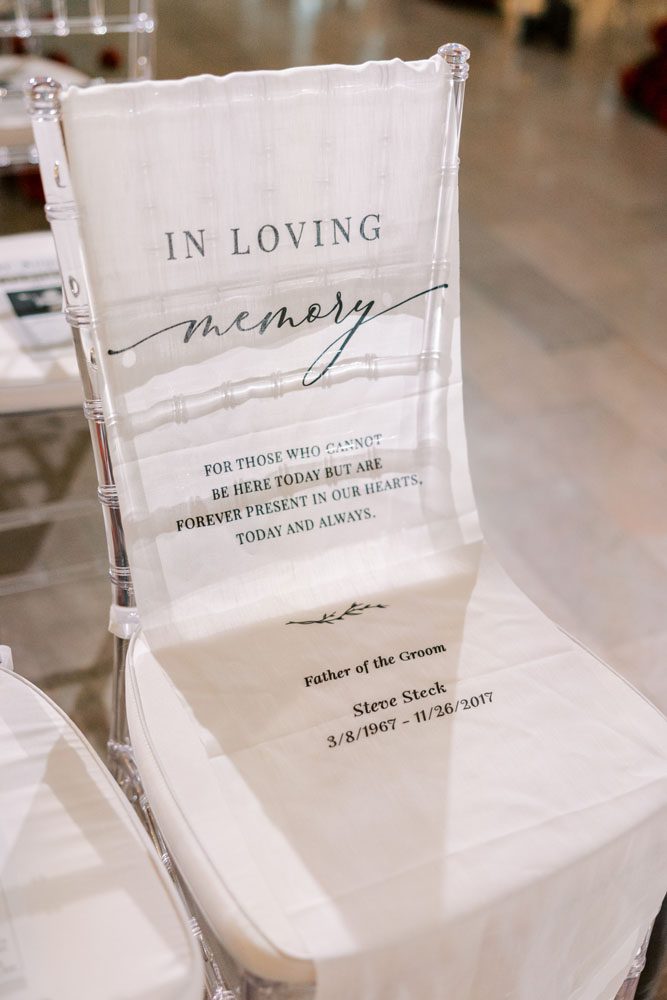 IN LOVING
memory
FOR THOSE WHO CANNOT
BE HERE TODAY BUT ARE
FOREVER PRESENT IN OUR HEARTS,
TODAY AND ALWAYS.
Father of the Groom
Steve Steck
3/8/1967 - 11/26/2017